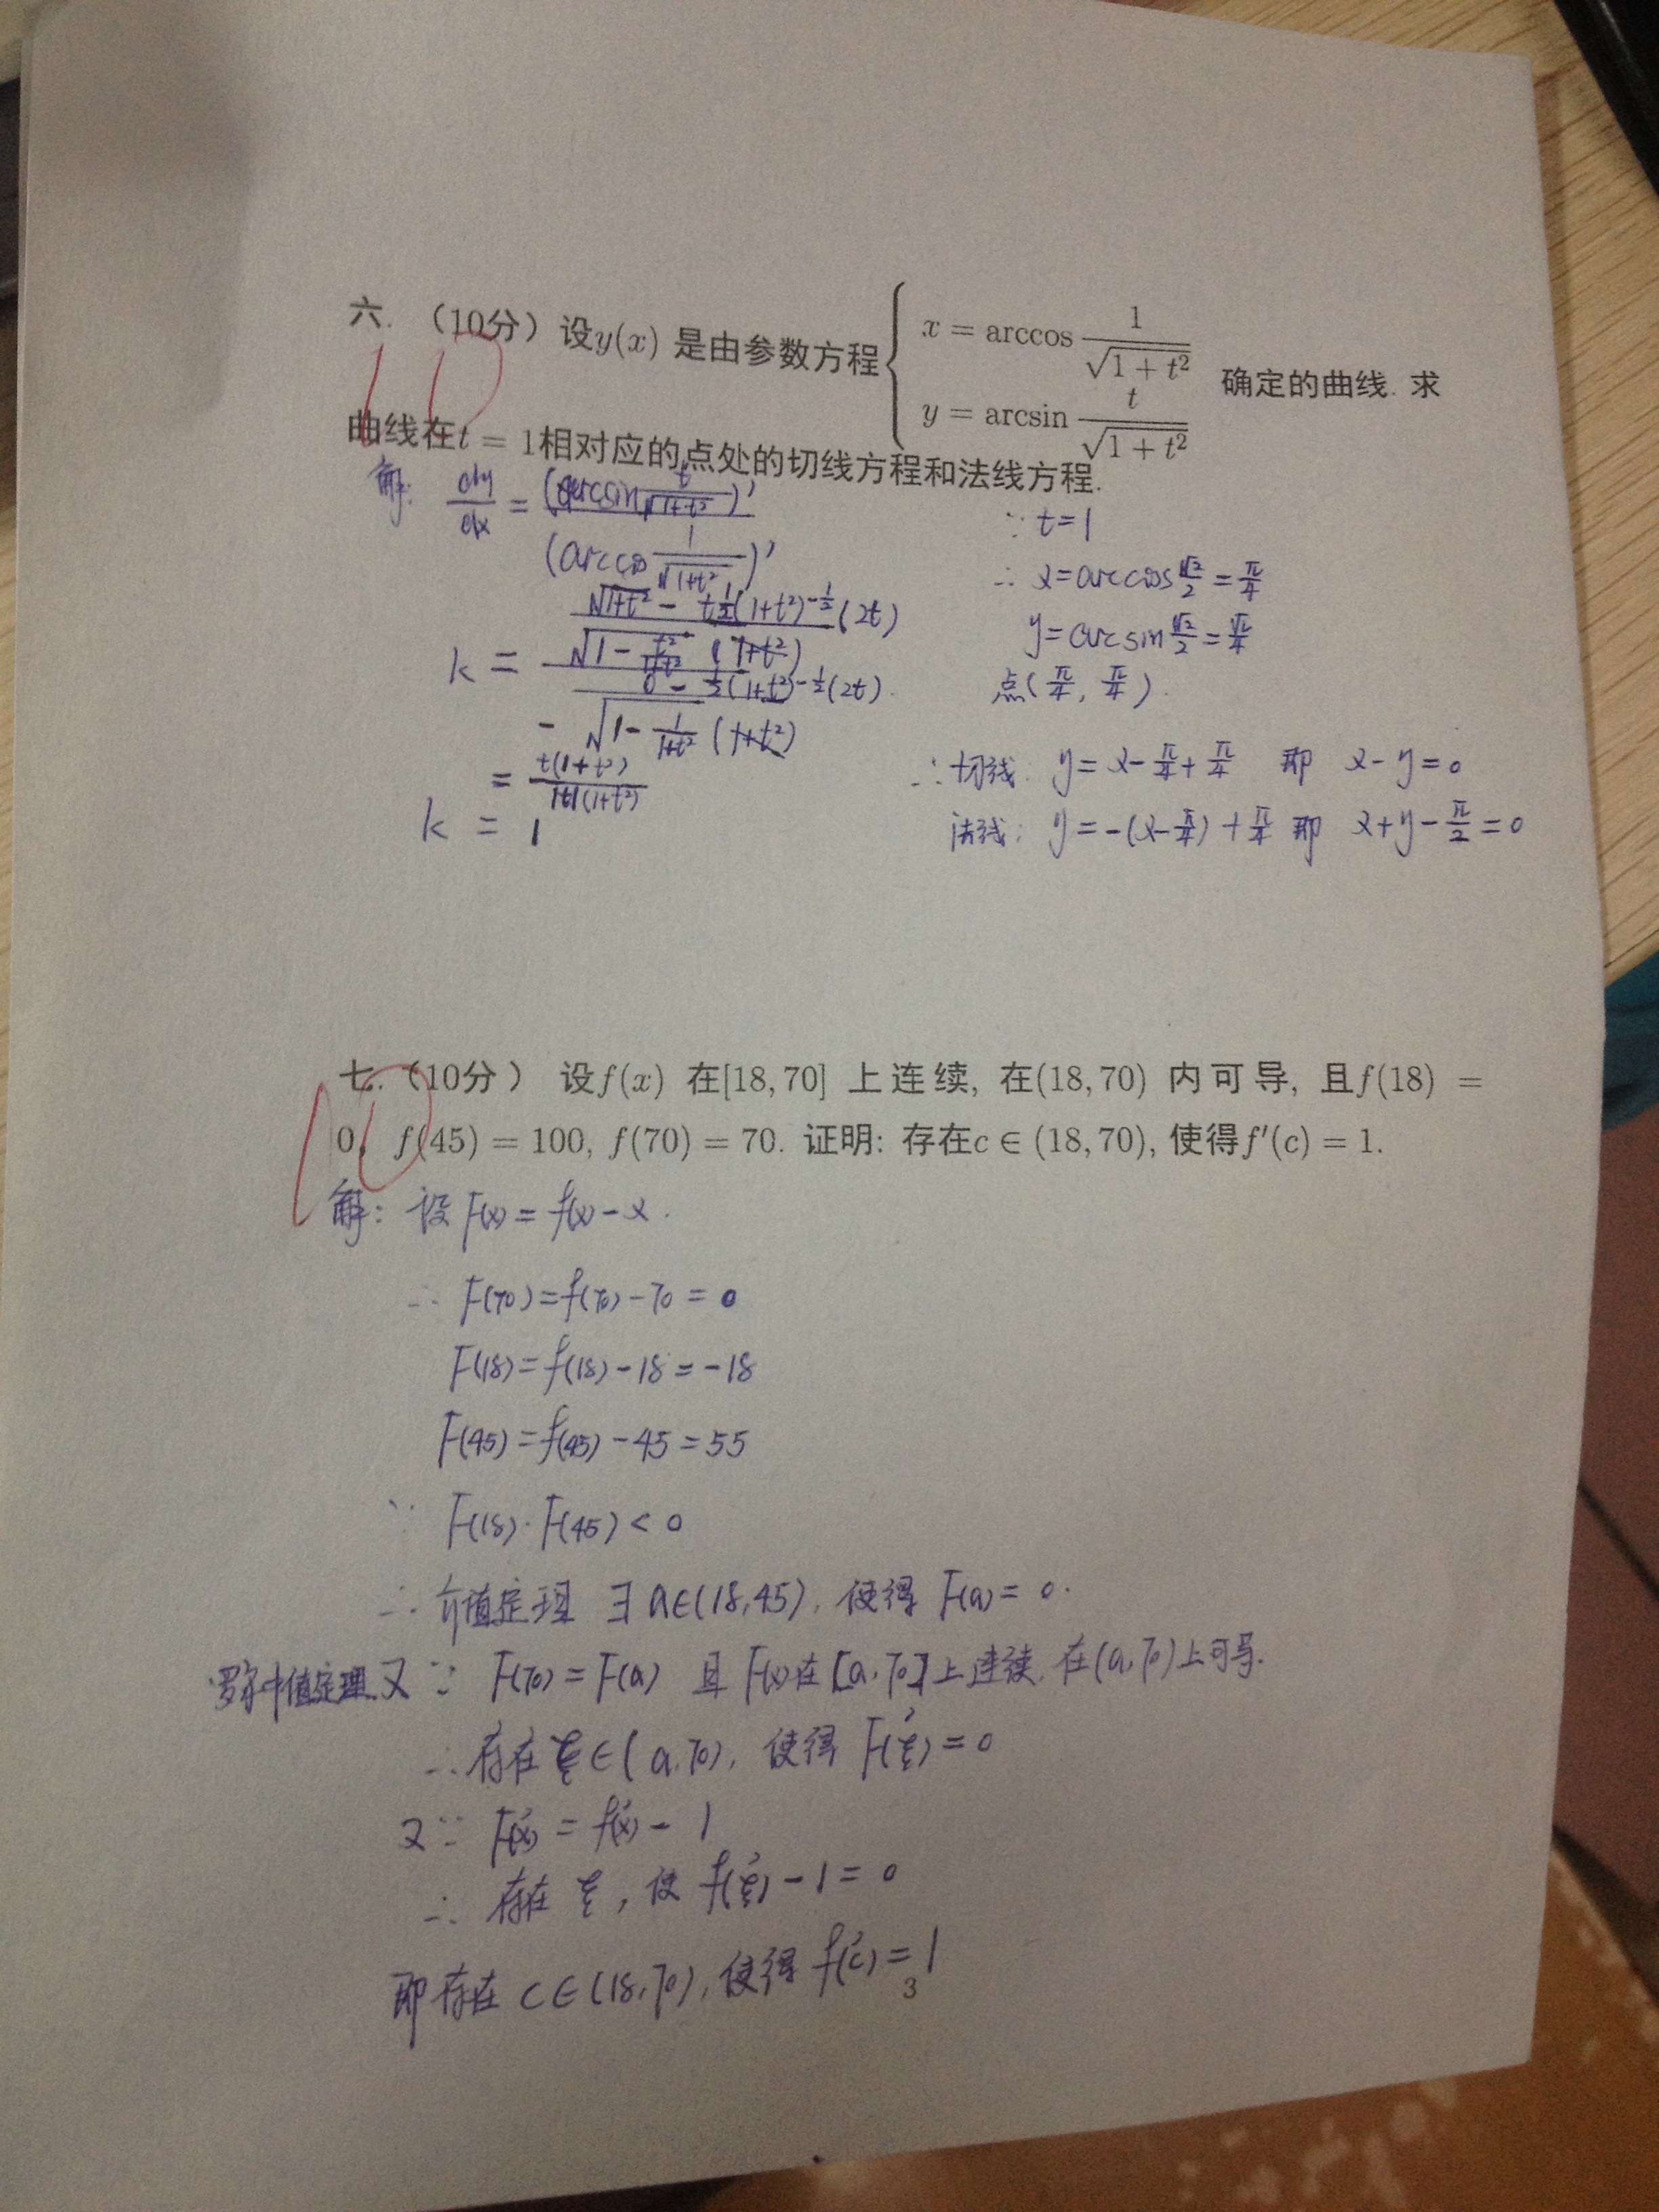 六. （10分）设y(x) 是由参数方程 { x = arccos 1/√(1+t²)  y = arcsin t/√(1+t²) 确定的曲线. 求
曲线在t = 1相对应的点处的切线方程和法线方程.
10
解: dy/dx = (arcsin t/√(1+t²))' / (arccos 1/√(1+t²))'
k = [ (√(1+t²) - t½(1+t²)^(-½)(2t)) / (√(1 - t²/(1+t²)) (1+t²)) ] / [ (0 - ½(1+t²)^(-½)(2t)) / (-√(1 - 1/(1+t²)) (1+t²)) ]
= t(1+t²) / |t|(1+t²)
k = 1
∵ t=1
∴ x=arccos √2/2 = π/4
y=arcsin √2/2 = π/4
点(π/4, π/4).
∴切线: y = x - π/4 + π/4 即 x - y = 0
法线: y = -(x - π/4) + π/4 即 x + y - π/2 = 0
七.（10分） 设f(x) 在[18, 70] 上连续, 在(18, 70) 内可导, 且f(18) =
0, f(45) = 100, f(70) = 70. 证明: 存在c ∈ (18, 70), 使得f′(c) = 1.
10
解: 设 F(x) = f(x) - x.
∴ F(70) = f(70) - 70 = 0
F(18) = f(18) - 18 = -18
F(45) = f(45) - 45 = 55
∵ F(18)·F(45) < 0
∴ 介值定理 ∃ a∈(18,45), 使得 F(a) = 0.
罗尔中值定理 又∵ F(70) = F(a) 且 F(x)在[a,70]上连续, 在(a,70)上可导.
∴存在 ξ∈(a,70), 使得 F'(ξ) = 0
又∵ F'(x) = f'(x) - 1
∴ 存在 ξ, 使 f'(ξ) - 1 = 0
即存在 c∈(18,70), 使得 f'(c) = 1
3